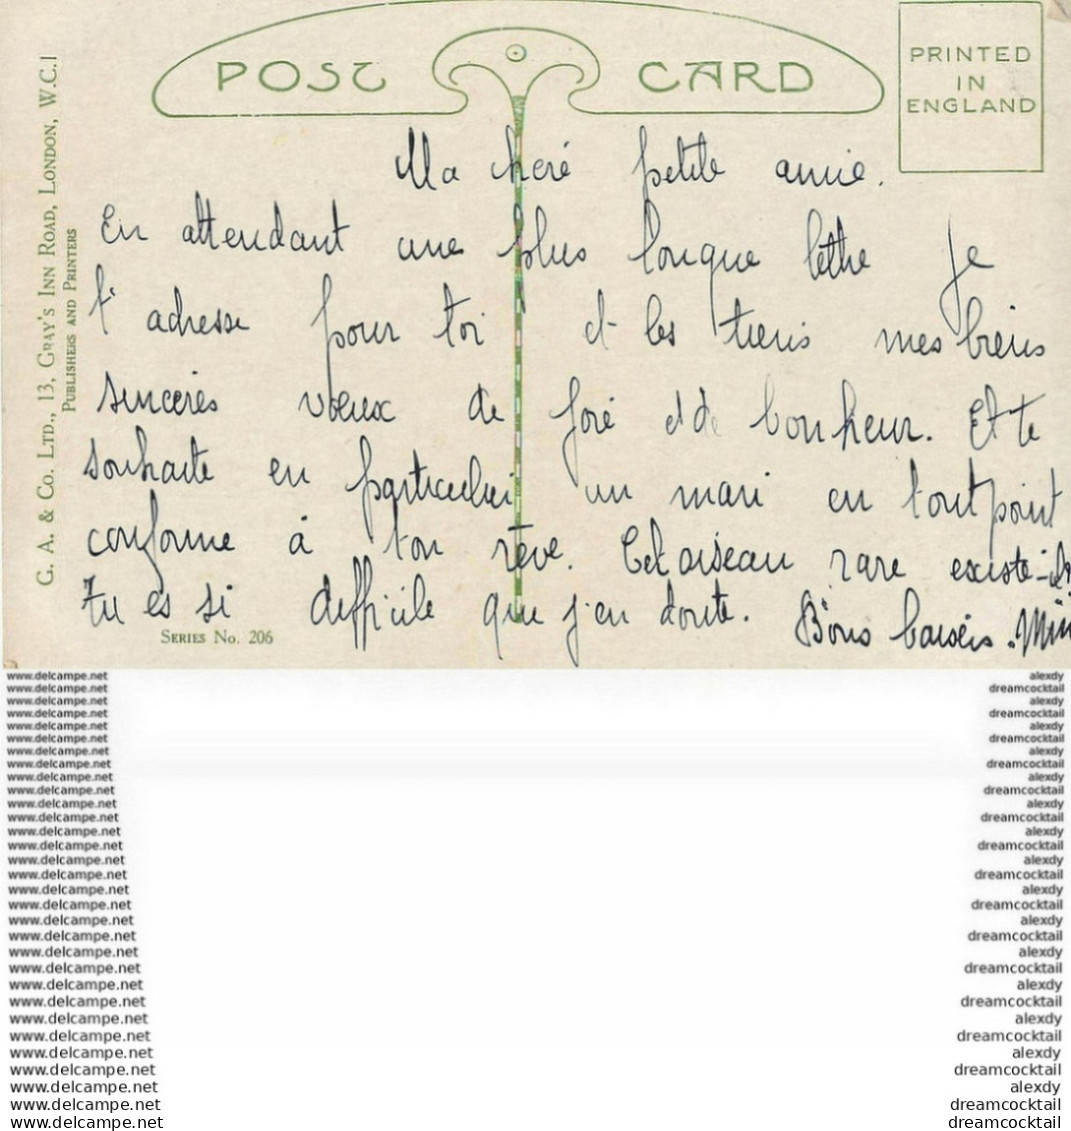 POST CARD
PRINTED
IN
ENGLAND
G. A. & Co. LTD., 13, GRAY'S INN ROAD, LONDON, W.C.1
PUBLISHERS AND PRINTERS
Ma chère petite amie.
En attendant une plus longue lettre je
t'adresse pour toi et les tiens mes biens
sincères voeux de joie et de bonheur. Et te
souhaite en particulier un mari en tout point
conforme à ton rêve. Cet oiseau rare existe-il
Tu es si difficile que j'en doute. Bons baisers.
SERIES No. 206
www.delcampe.net alexdy
www.delcampe.net dreamcocktail
www.delcampe.net alexdy
www.delcampe.net dreamcocktail
www.delcampe.net alexdy
www.delcampe.net dreamcocktail
www.delcampe.net alexdy
www.delcampe.net dreamcocktail
www.delcampe.net alexdy
www.delcampe.net dreamcocktail
www.delcampe.net alexdy
www.delcampe.net dreamcocktail
www.delcampe.net alexdy
www.delcampe.net dreamcocktail
www.delcampe.net alexdy
www.delcampe.net dreamcocktail
www.delcampe.net alexdy
www.delcampe.net dreamcocktail
www.delcampe.net alexdy
www.delcampe.net dreamcocktail
www.delcampe.net alexdy
www.delcampe.net dreamcocktail
www.delcampe.net alexdy
www.delcampe.net dreamcocktail
www.delcampe.net alexdy
www.delcampe.net dreamcocktail
www.delcampe.net alexdy
www.delcampe.net dreamcocktail
www.delcampe.net alexdy
www.delcampe.net dreamcocktail
www.delcampe.net dreamcocktail